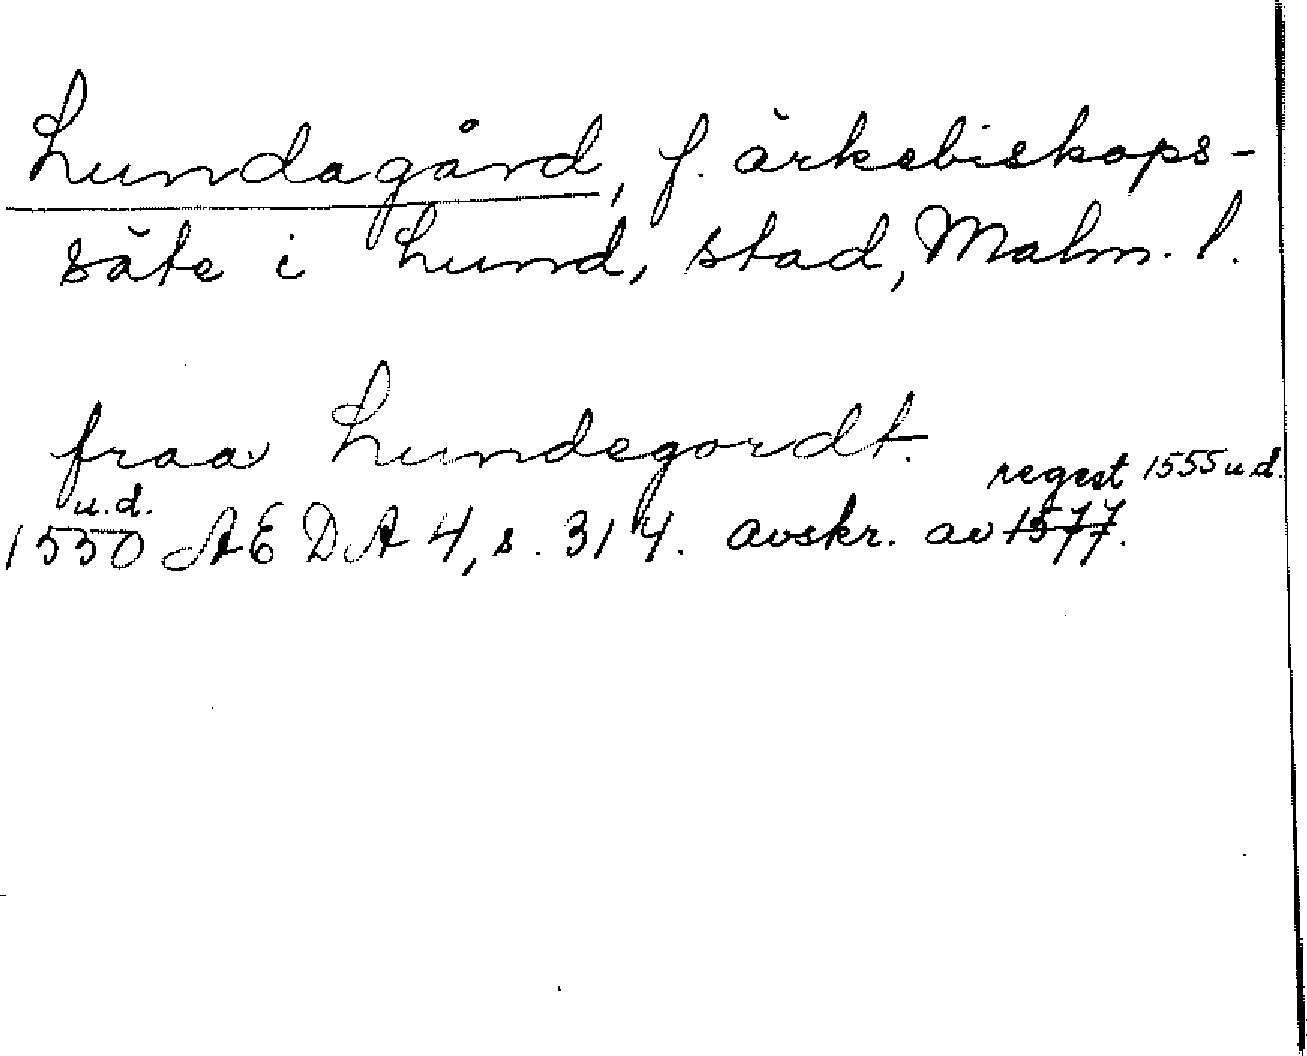 Lundagård, f. ärkebiskops-
säte i Lund, stad, Malm. l.
fraa Lundegordt.
regest 1555 u.d.
u.d.
1550 AEDA 4, s. 314. avskr. av 1577.